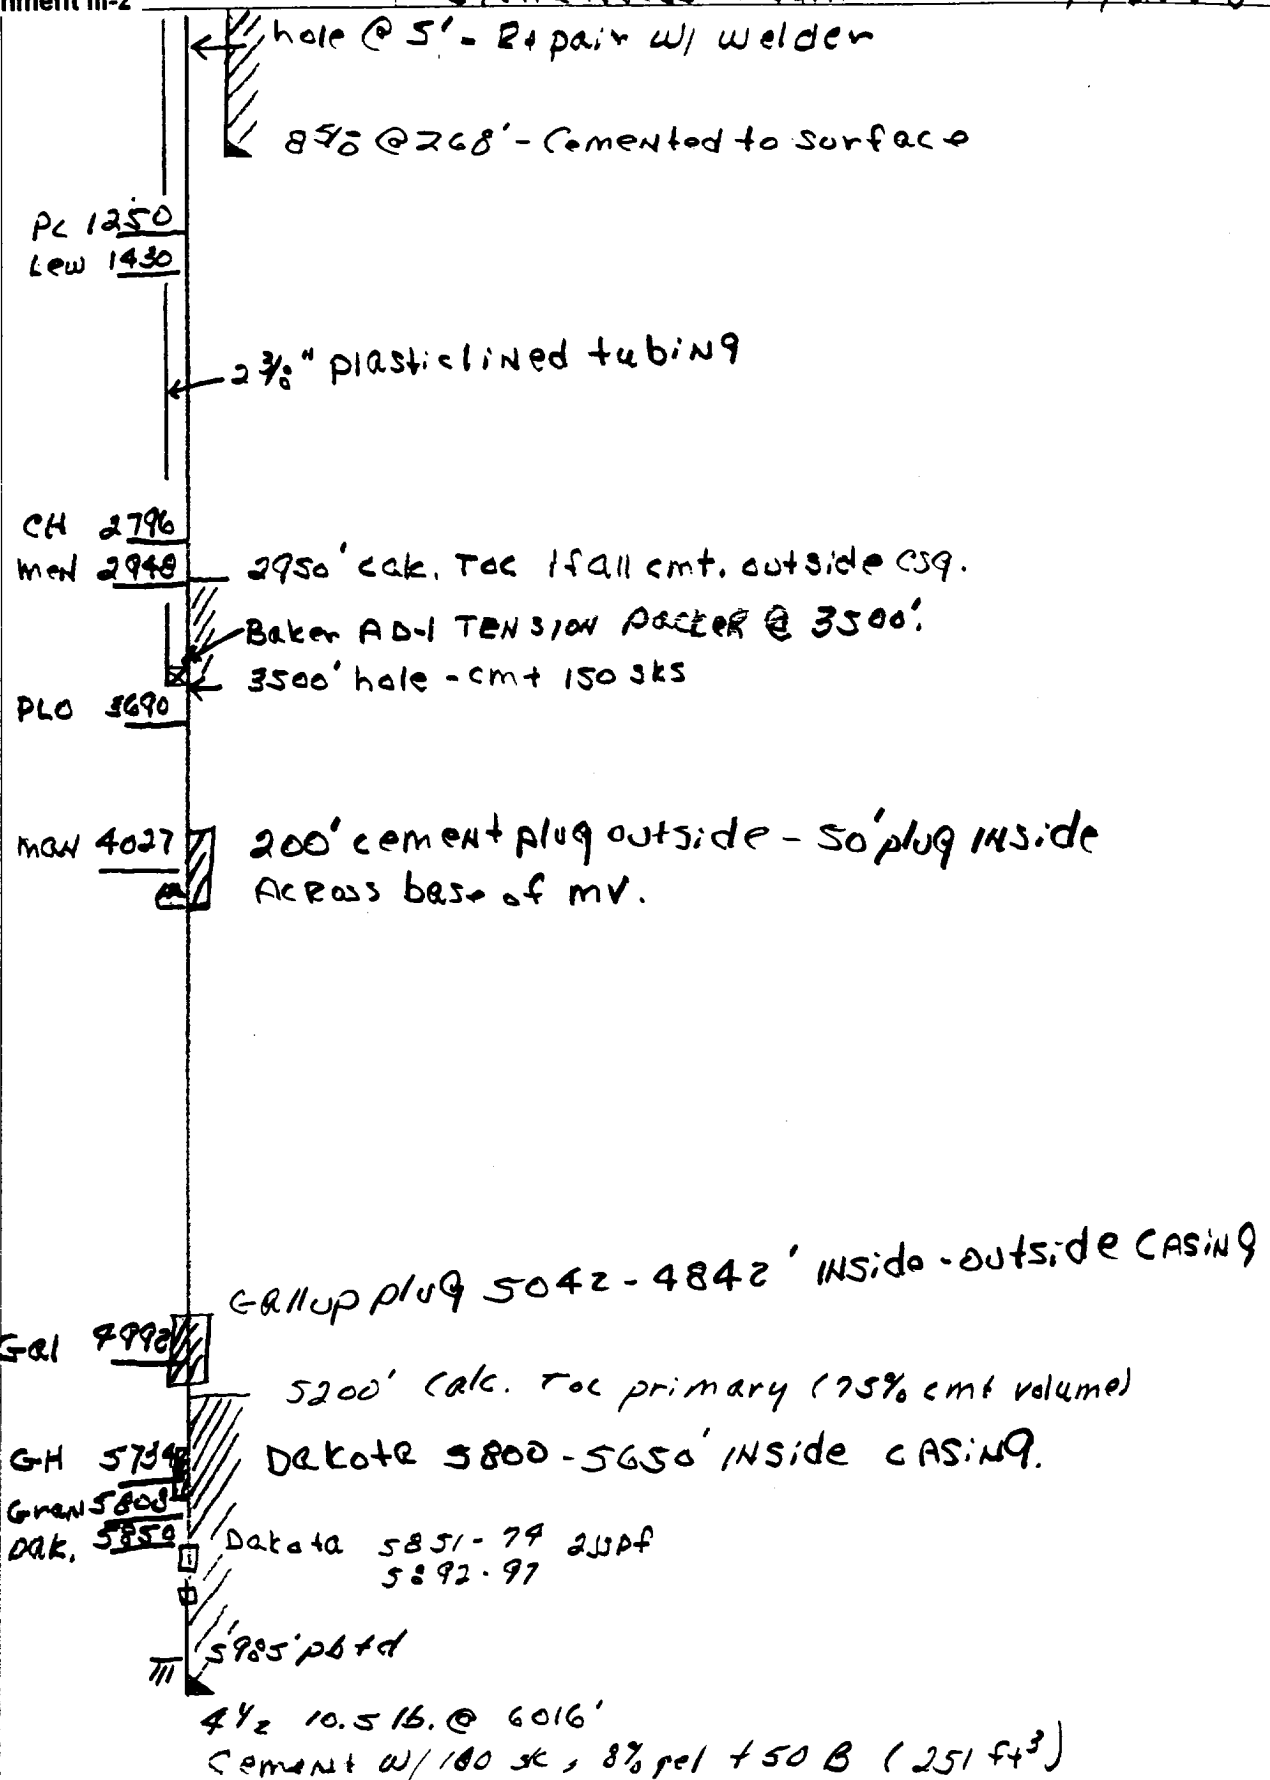 hole @ 5' - Repair w/ welder
8 5/8 @ 268' - Cemented to surface
PC 1250
Lew 1430
2 3/8" plastic lined tubing
CH 2796
men 2948
2950' calc. TOC if all cmt. outside csg.
Baker AD-1 TENSION PACKER @ 3500'.
3500' hole - cmt 150 sks
PLO 3690
man 4027
200' cement plug outside - 50' plug INside
Across base of mv.
Gallup plug 5042 - 4842' INside - outside CASiNg
Gal 4992
5200' Calc. TOC primary (75% cmt volume)
GH 5734
Dakota 5800 - 5650' INside CASiNg.
Gran 5803
Dak. 5850
Dakota 5851 - 74 2jspf
5892 - 97
5985' pbtd
4 1/2 10.5 lb. @ 6016'
Cement w/ 180 sk, 8% gel + 50 B (251 ft³)